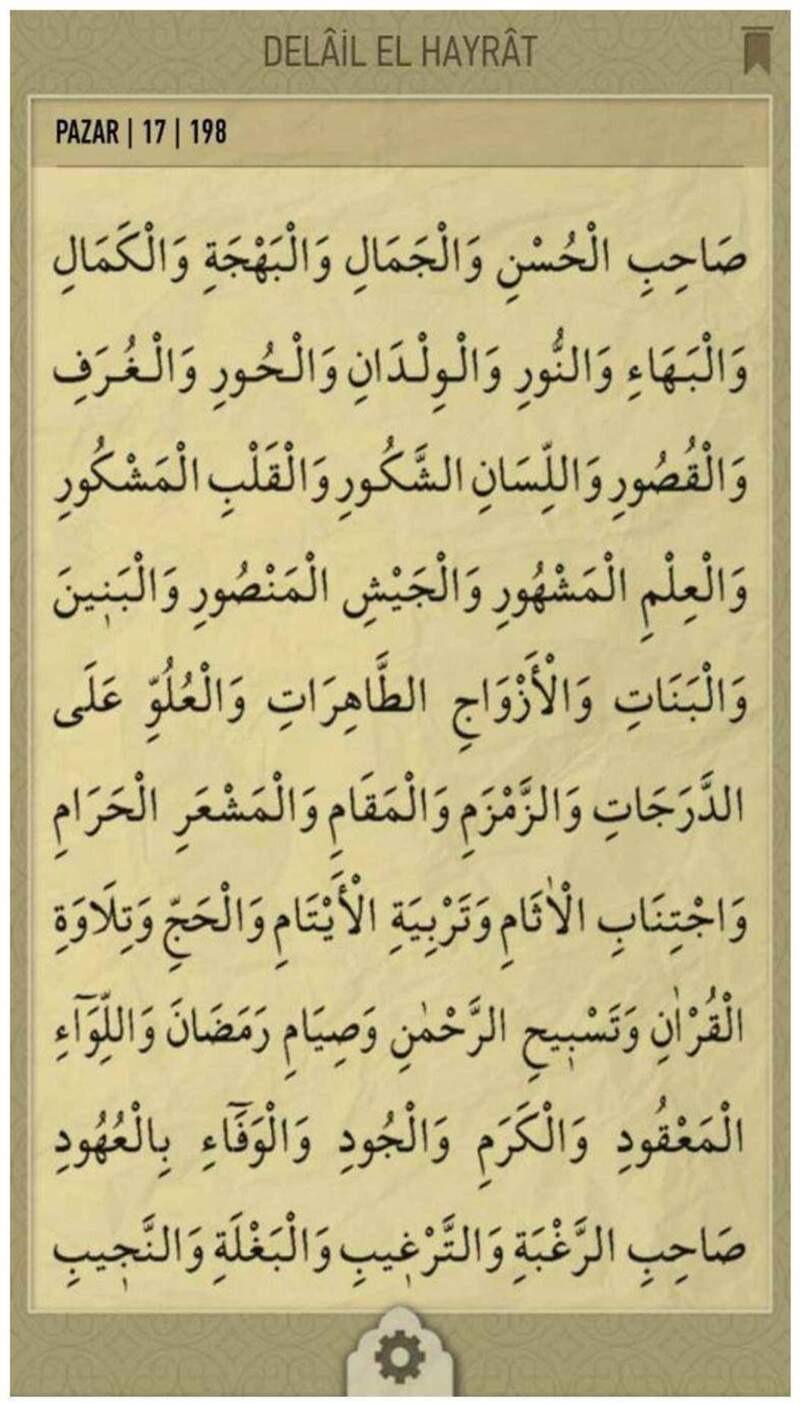 DELÂİL EL HAYRÂT
PAZAR | 17 | 198
صَاحِبِ الْحُسْنِ وَالْجَمَالِ وَالْبَهْجَةِ وَالْكَمَالِ
وَالْبَهَاءِ وَالنُّورِ وَالْوِلْدَانِ وَالْحُورِ وَالْغُرَفِ
وَالْقُصُورِ وَاللِّسَانِ الشَّكُورِ وَالْقَلْبِ الْمَشْكُورِ
وَالْعِلْمِ الْمَشْهُورِ وَالْجَيْشِ الْمَنْصُورِ وَالْبَنِينَ
وَالْبَنَاتِ وَالْأَزْوَاجِ الطَّاهِرَاتِ وَالْعُلُوِّ عَلَى
الدَّرَجَاتِ وَالزَّمْزَمِ وَالْمَقَامِ وَالْمَشْعَرِ الْحَرَامِ
وَاجْتِنَابِ الْاٰثَامِ وَتَرْبِيَةِ الْأَيْتَامِ وَالْحَجِّ وَتِلَاوَةِ
الْقُرْاٰنِ وَتَسْبِيحِ الرَّحْمٰنِ وَصِيَامِ رَمَضَانَ وَاللِّوَٓاءِ
الْمَعْقُودِ وَالْكَرَمِ وَالْجُودِ وَالْوَفَٓاءِ بِالْعُهُودِ
صَاحِبِ الرَّغْبَةِ وَالتَّرْغِيبِ وَالْبَغْلَةِ وَالنَّجِيبِ